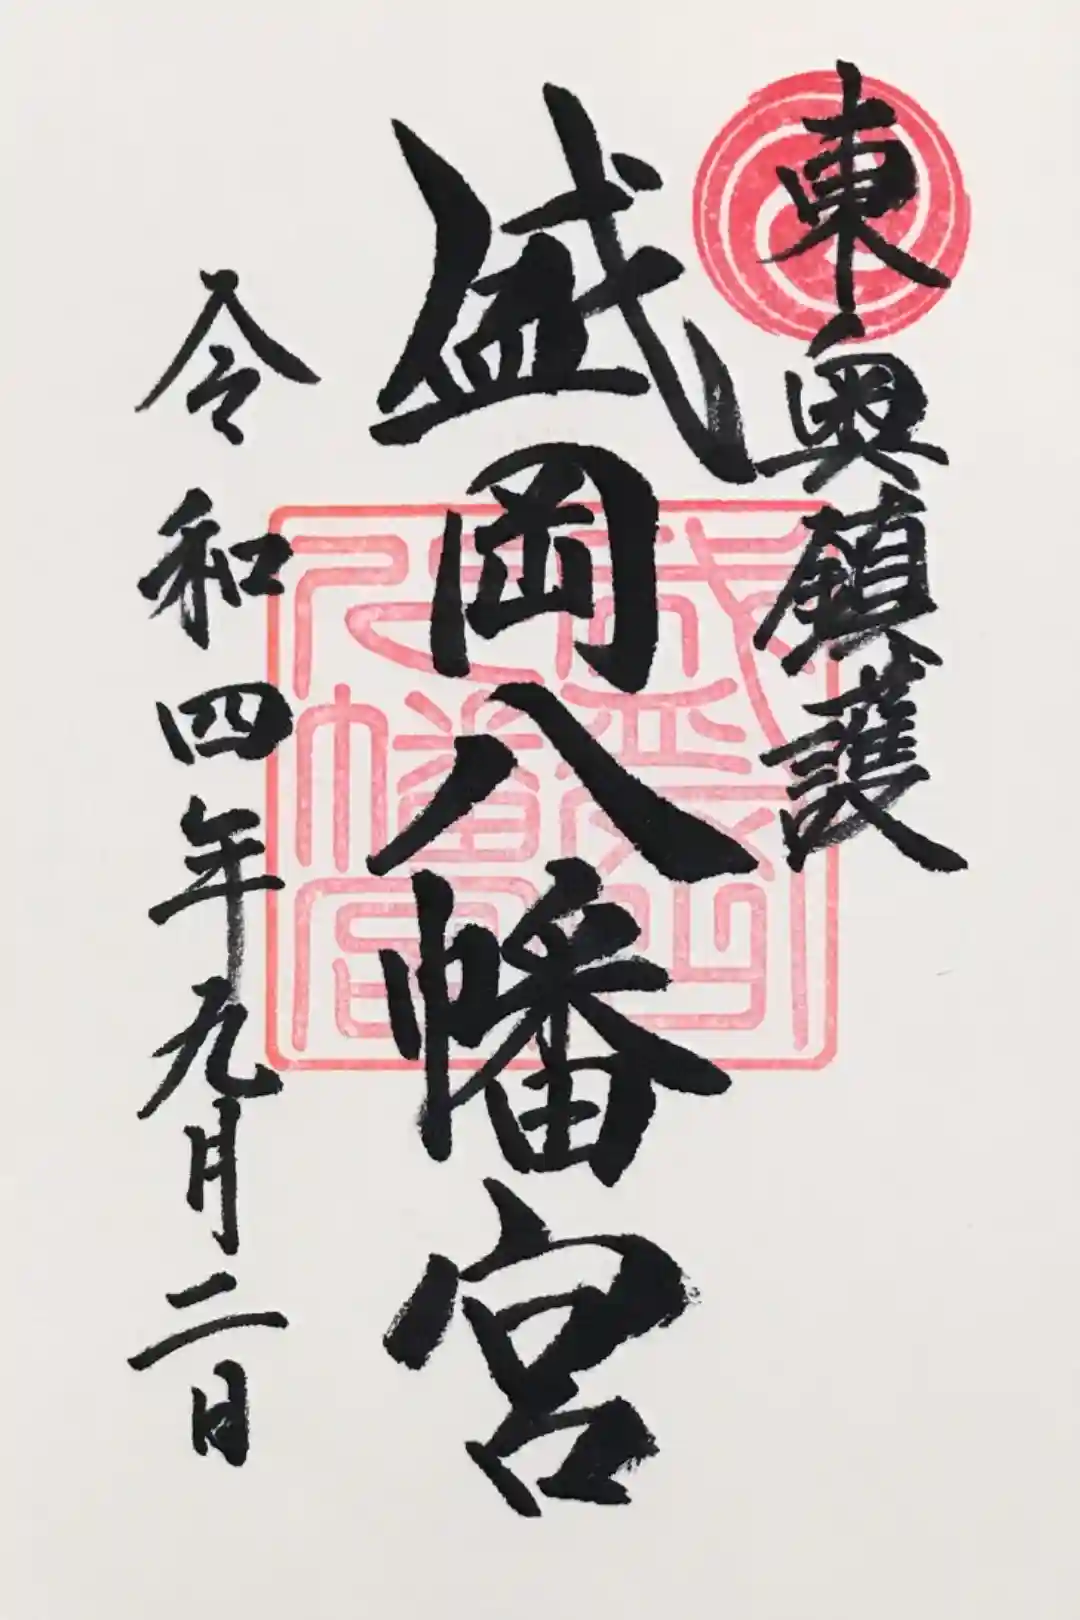 東奥鎮護
盛岡八幡宮
令和四年九月二日
盛岡八幡宮